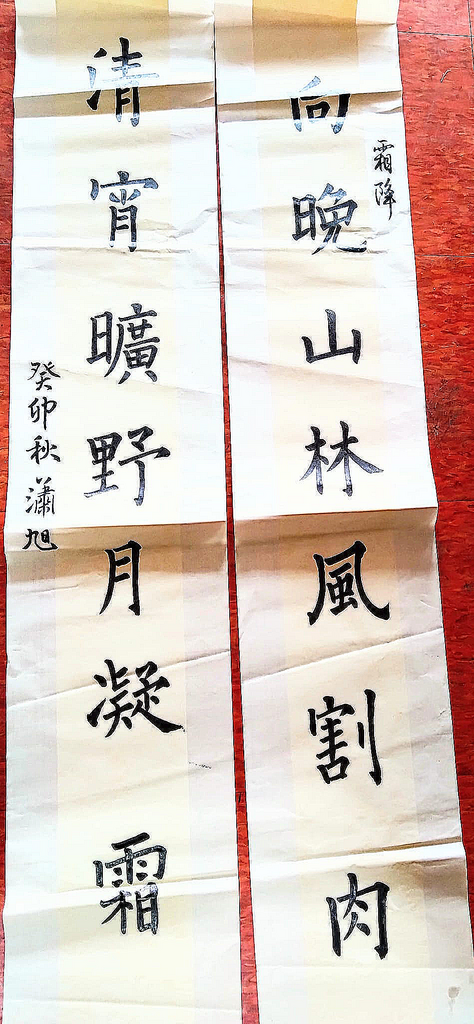 霜降
向晚山林風割肉
清宵曠野月凝霜
癸卯秋瀟旭